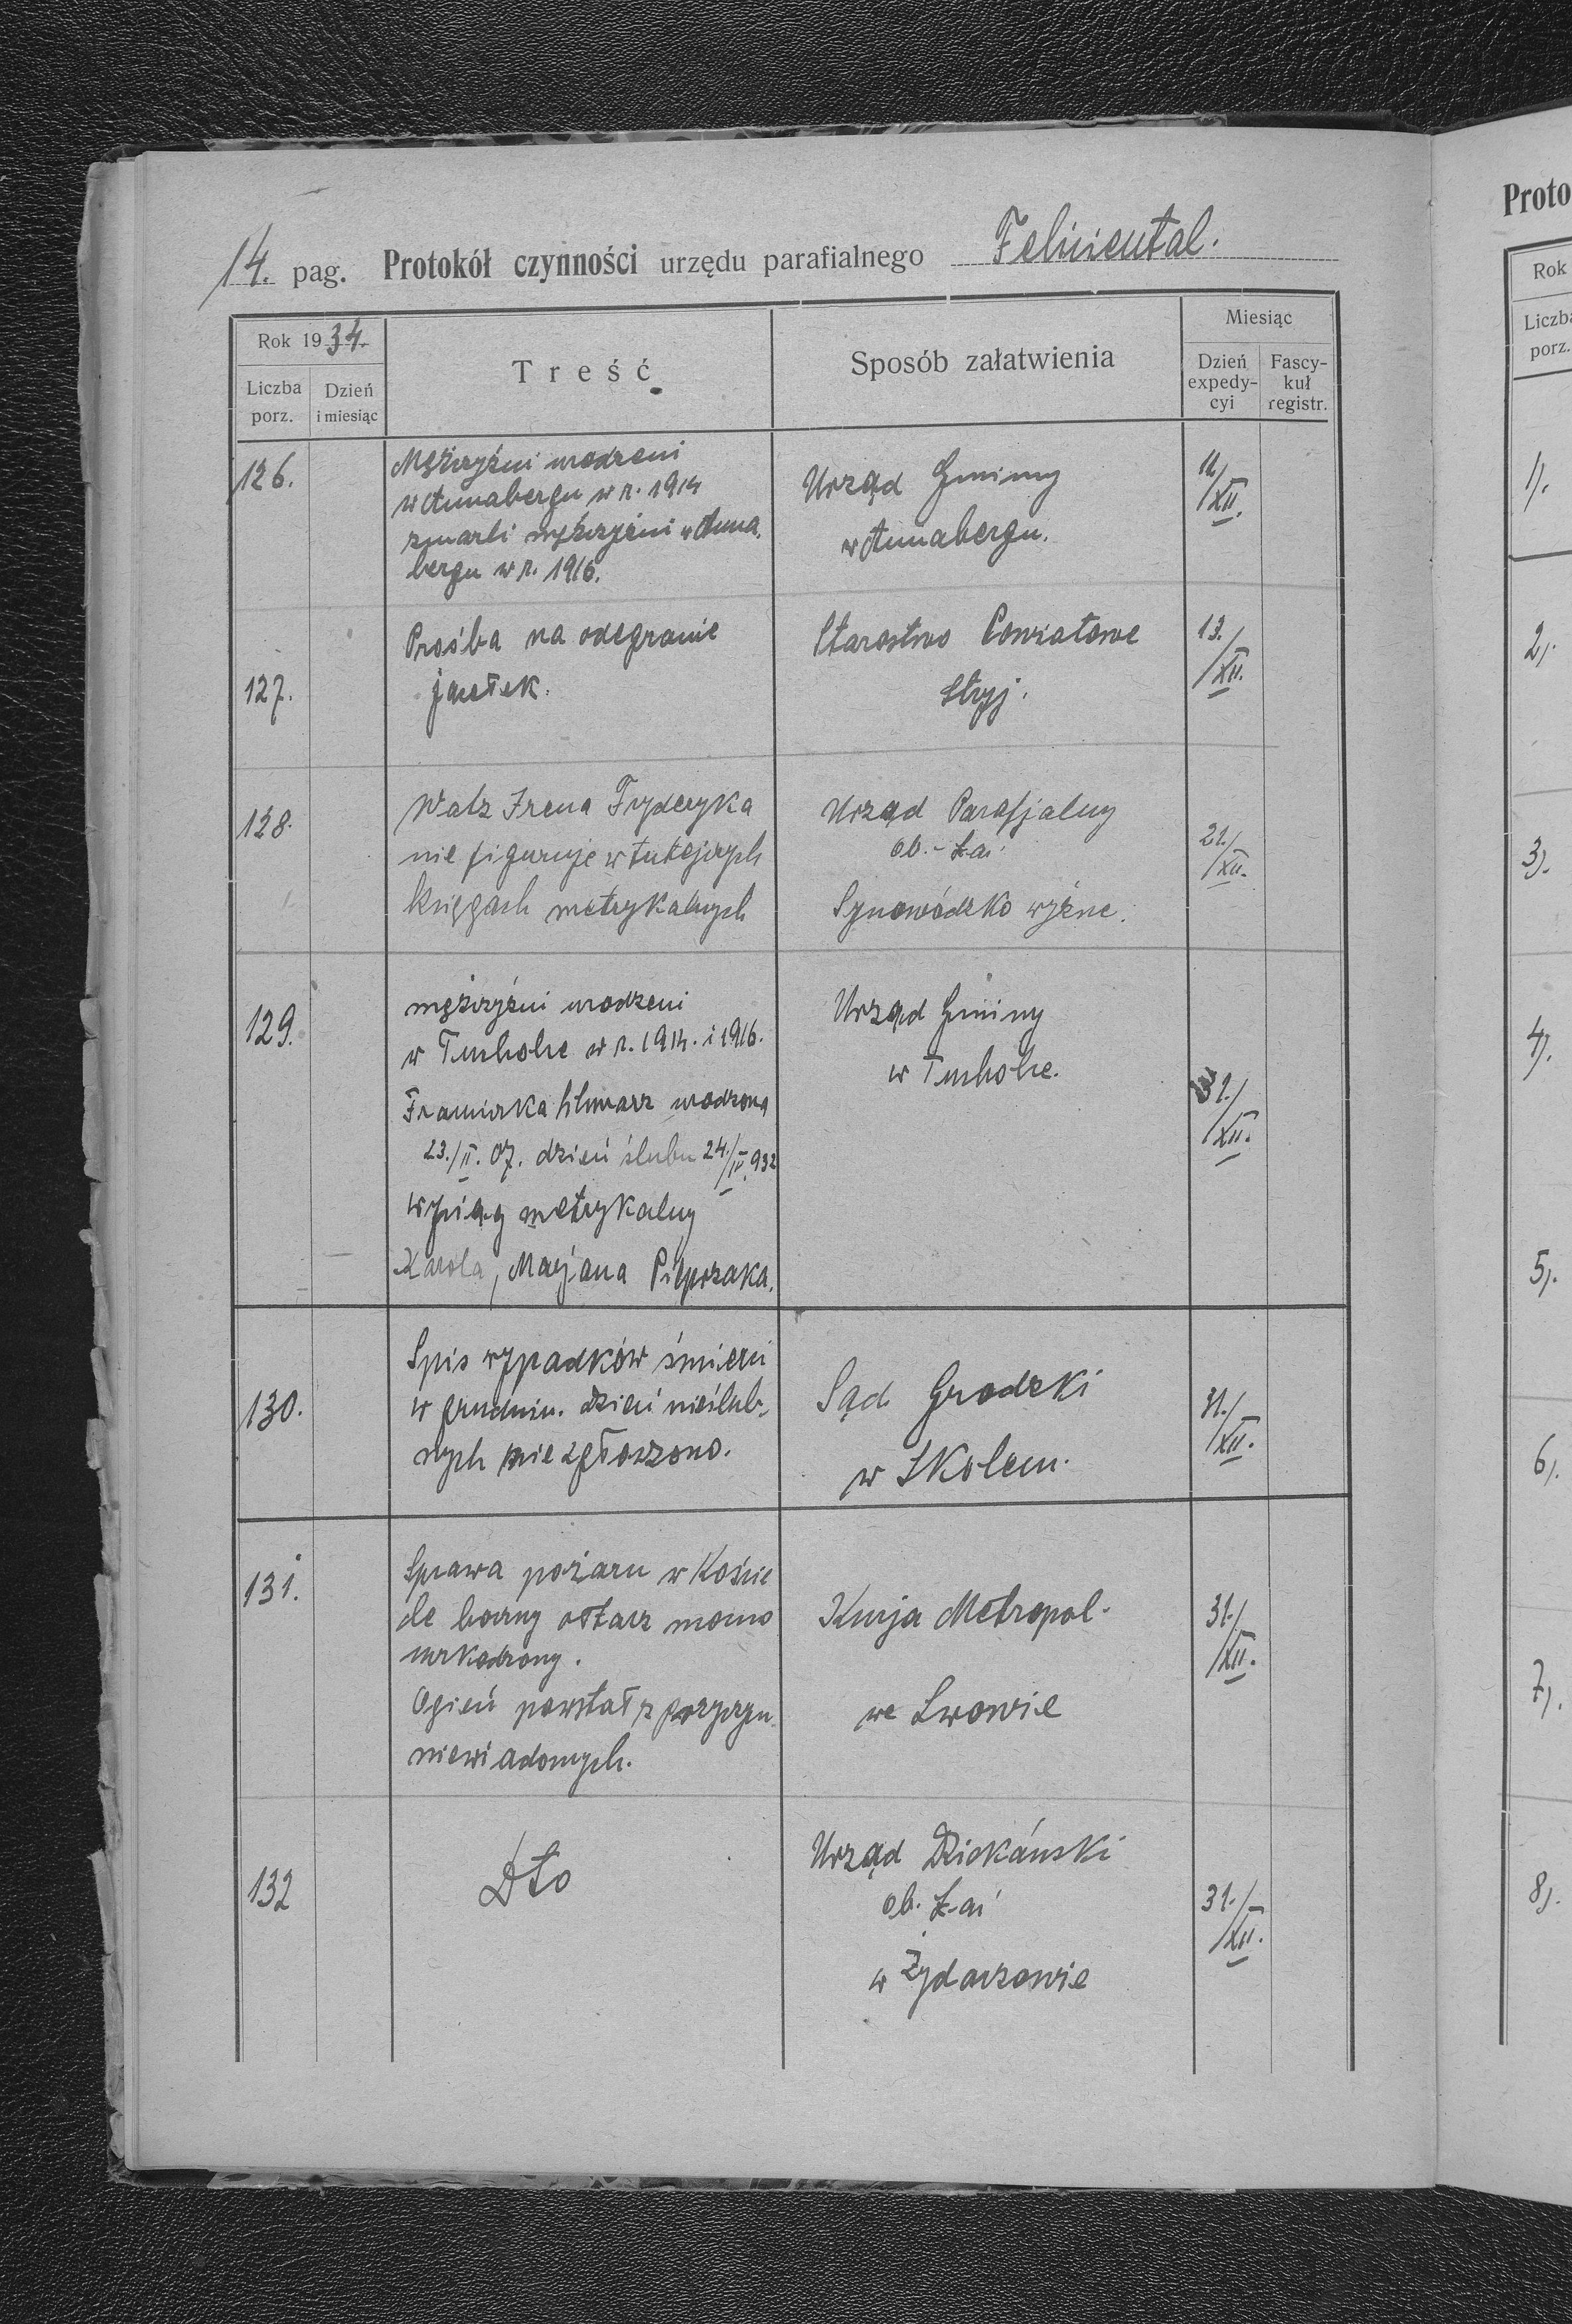 14. pag. Protokół czynności urzędu parafialnego Feliciental.
Rok 1934.
Liczba porz.
Dzień i miesiąc
Treść
Sposób załatwienia
Miesiąc
Dzień expedy-cyi
Fascy-kuł registr.
126.
Mężczyźni urodzeni
w Annabergu w r. 1914
zmarli mężczyźni w Anna
bergu w r. 1916.
Urząd Gminny
w Annabergu.
11/XII.
127.
Prośba na odegranie
jasełek.
Starostwo Powiatowe
Stryj.
13./XII.
128.
Watz Irena Fryderyka
nie figuruje w tutejszych
księgach metrykalnych
Urząd Parafjalny
ob. - łac
Synowódzko wyżne.
21./XII.
129.
mężczyźni urodzeni
w Tucholce w r. 1914. i 1916.
Franciszka urodzona
23./II. 07. dzień ślubu 24./IV. 932
wyciąg metrykalny
Karola, Marjana
Urząd Gminy
w Tucholce.
31./XII.
130.
Spis wypadków śmierci
w grudniu. dzieci nieślub-
nych nie zgłoszono.
Sąd Grodzki
w Skolem.
31./XII.
131.
Sprawa pożaru w Koście
le boczny ołtarz mocno
uszkodzony.
Ogień powstał z przyczyn
niewiadomych.
Kurja Metropol.
we Lwowie
31./XII.
132
Dto
Urząd Dziekański
ob. łac
w Żydaczowie
31./XII.
Proto
Rok
Liczba
porz.
1).
2).
3).
4).
5).
6).
7).
8).